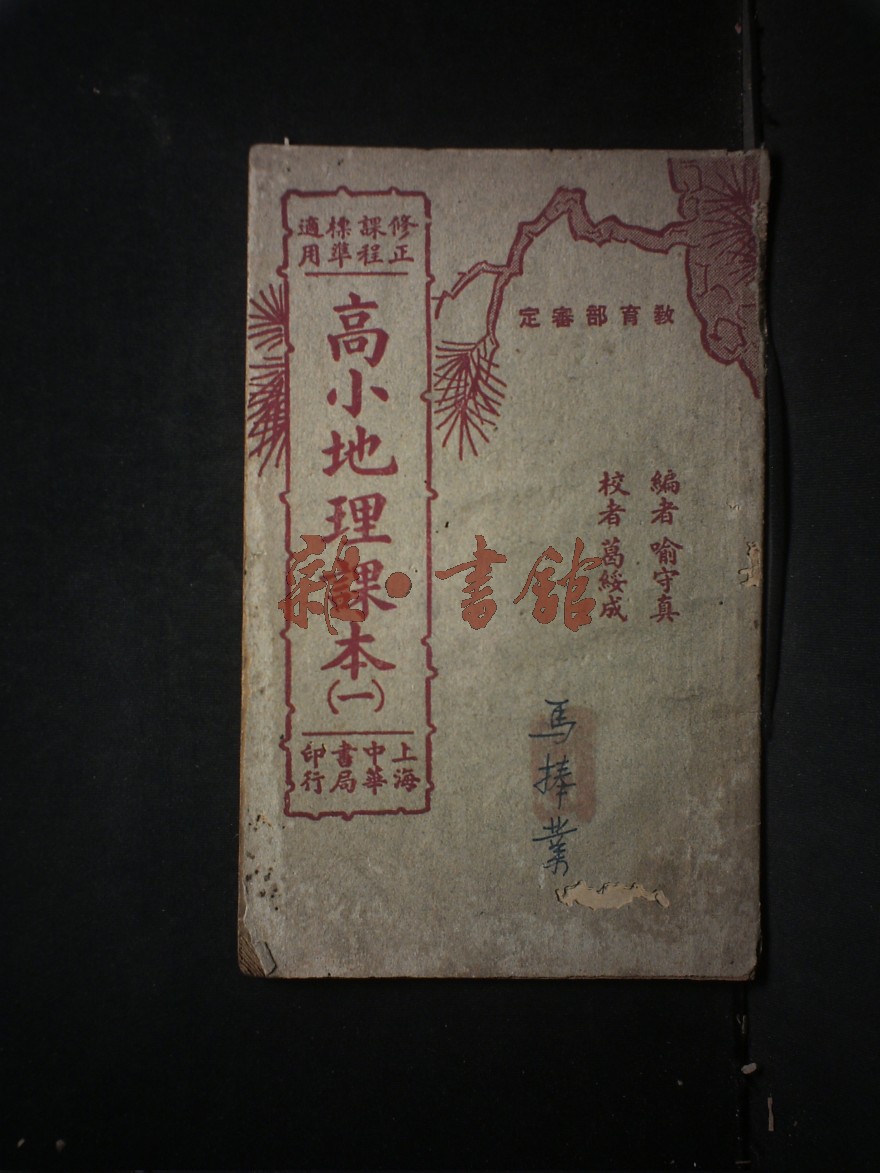 修正課程標準適用
高小地理課本
(一)
上海中華書局印行
教育部審定
編者 喻守真
校者 葛綏成
馬捧業
雜·書館